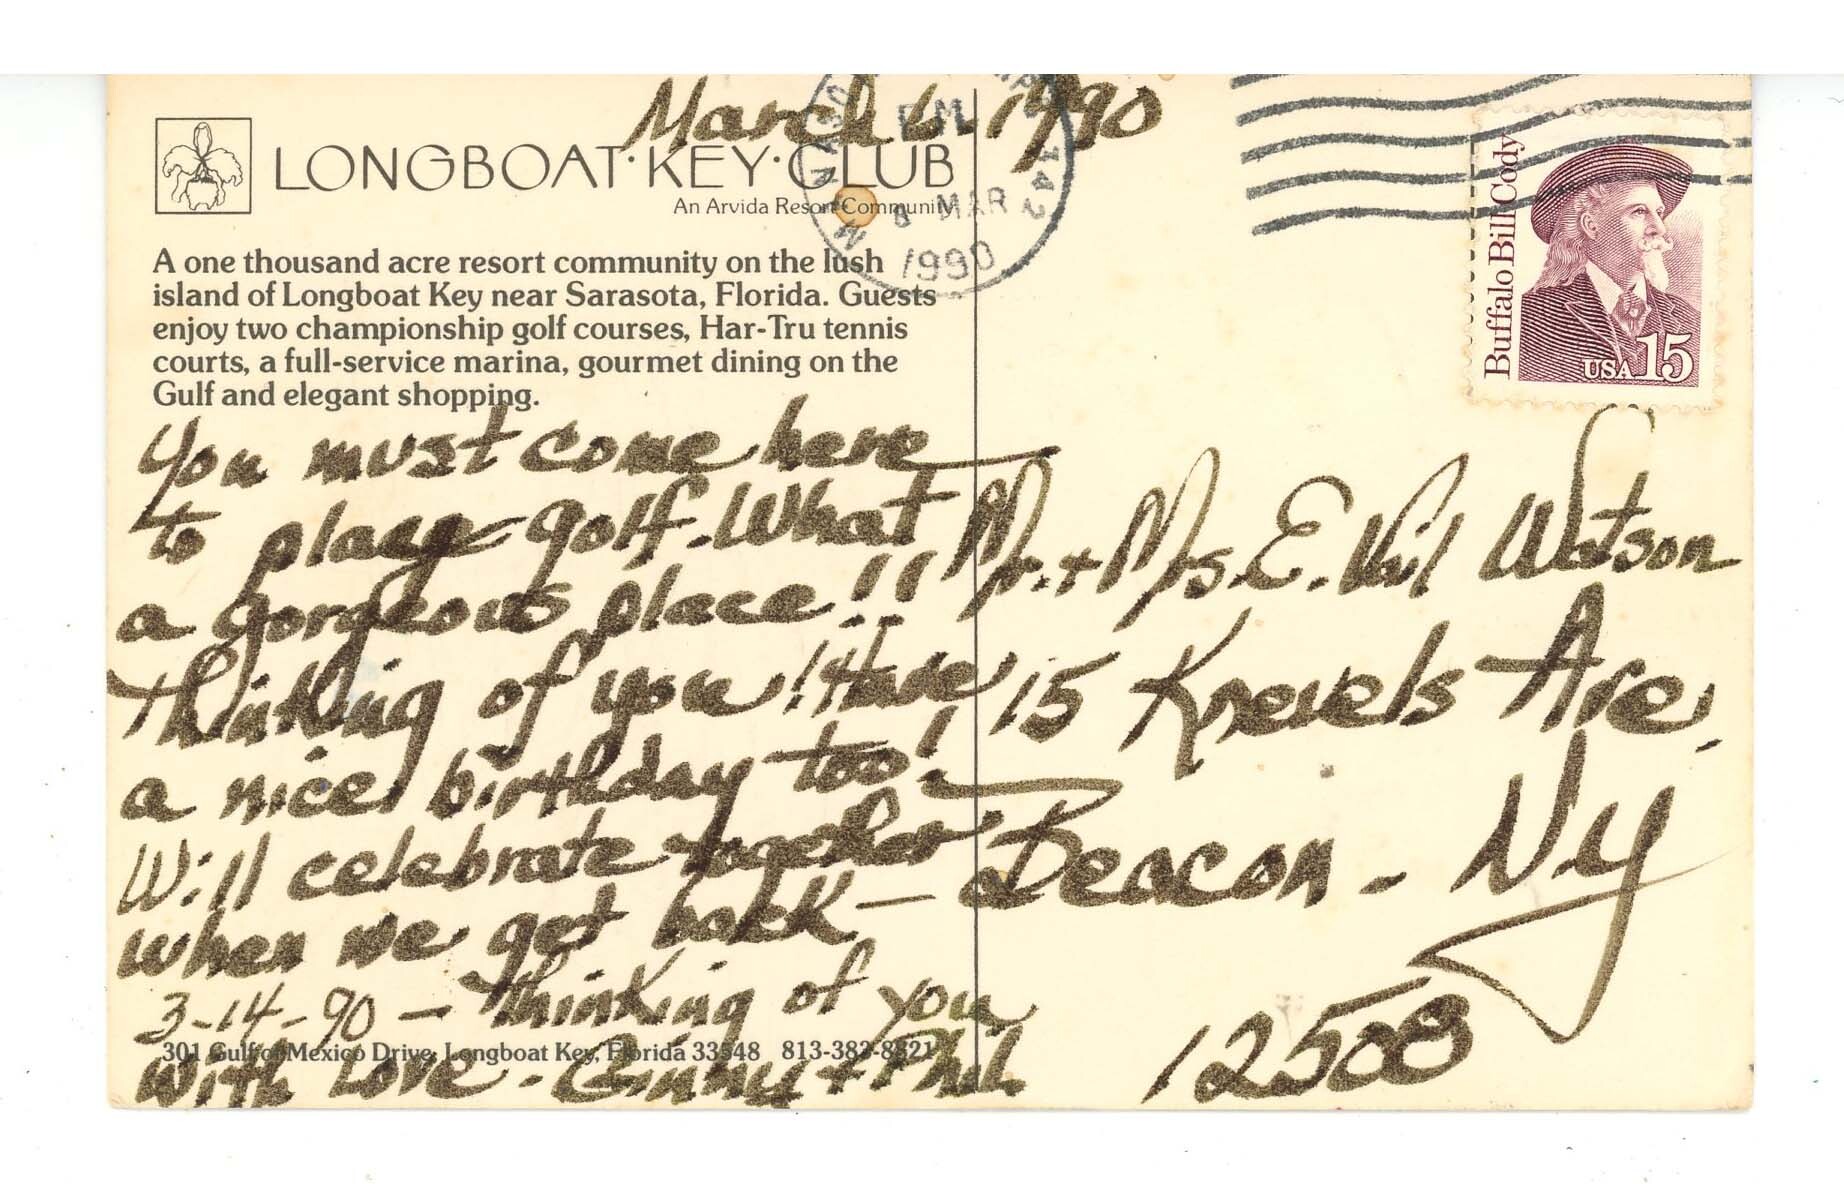 March 6, 1990
LONGBOAT·KEY·CLUB
An Arvida Resort Community
PM
8 MAR
1990
342
A one thousand acre resort community on the lush
island of Longboat Key near Sarasota, Florida. Guests
enjoy two championship golf courses, Har-Tru tennis
courts, a full-service marina, gourmet dining on the
Gulf and elegant shopping.
You must come here
to place golf. What
a gorgeous place!!
Thinking of you! Have
a nice birthday too!
Will celebrate together
when we get back —
3-14-90 — Thinking of you
301 Gulf of Mexico Drive, Longboat Key, Florida 33548 813-383-8821
With Love - Ginny + Phil
Buffalo Bill Cody
USA 15
Mr. + Mrs. E. Watson
15 Knevels Ave.
Beacon - N.Y
12508